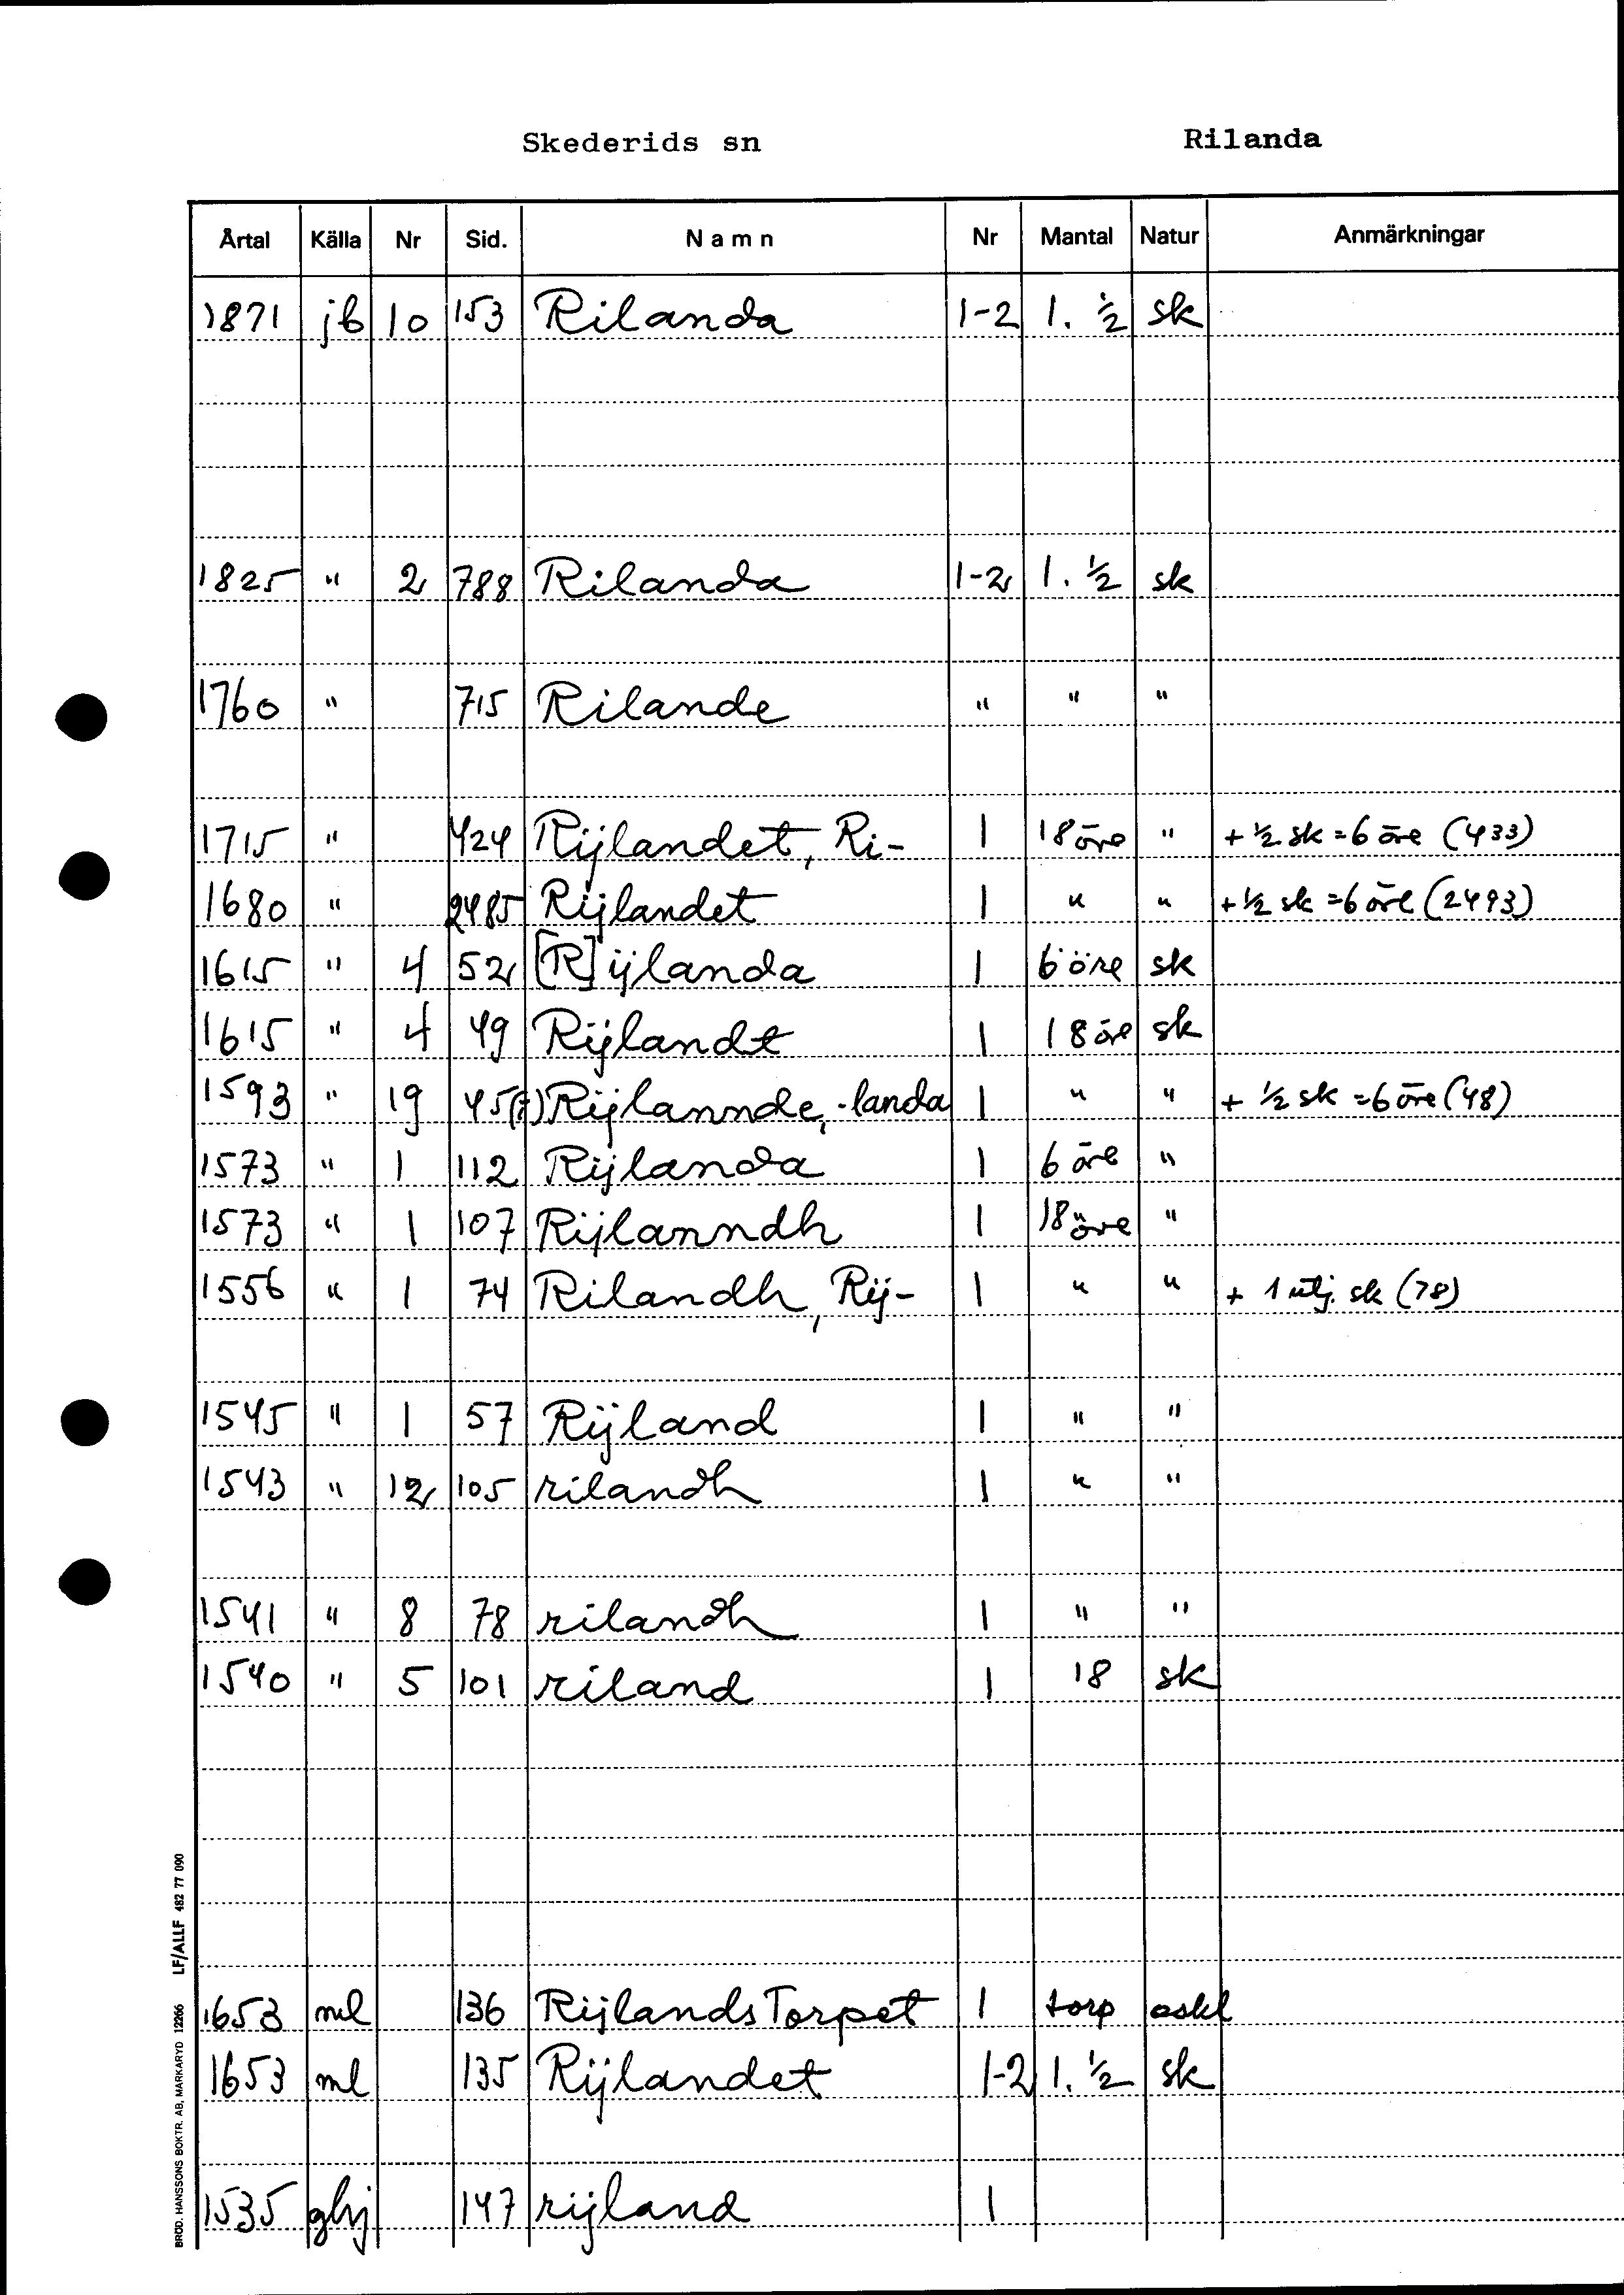 Skederids sn Rilanda
Årtal Källa Nr Sid. Namn Nr Mantal Natur Anmärkningar
1871 jb 10 153 Rilanda 1-2 1. ½ sk
1825 " 2 788 Rilanda 1-2 1. ½ sk
1760 " 715 Rilande " " "
1715 " 424 Rijlandet, Ri- 1 18 öre " + ½ sk = 6 öre (433)
1680 " 2485 Rijlandet 1 " " + ½ sk = 6 öre (2493)
1615 " 4 52 [R]ijlanda 1 6 öre sk
1615 " 4 49 Rijlandt 1 18 öre sk
1593 " 19 45(f) Rijlannde, -landa 1 " " + ½ sk = 6 öre (48)
1573 " 1 112 Rijlanda 1 6 öre "
1573 " 1 107 Rijlanndh 1 18 öre "
1556 " 1 74 Rilandh, Rij- 1 " " + 1 utj. sk (78)
1545 " 1 57 Rijland 1 " "
1543 " 12 105 rilandh 1 " "
1541 " 8 78 rilandh 1 " "
1540 " 5 101 riland 1 18 sk
1653 ml 136 RijlandsTorpet 1 torp
1653 ml 135 Rijlandet 1-2 1. ½ sk
1535 ghj 147 rijland 1
BRÖD. HANSSONS BOKTR. AB, MARKARYD 12266 LF/ALLF 482 77 090